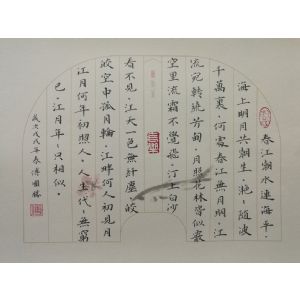 春江潮水連海平。
海上明月共潮生。滟〻随波
千萬裏。何處春江無月明。江
流宛轉繞芳甸。月照花林皆似霰
空里流霜不覺飛。汀上白沙
看不見。江天一色無纖塵。皎
皎空中孤月輪。江畔何人初見月
江月何年初照人。人生代〻無窮
已。江月年〻只相似。
歲次戊戌年春傅